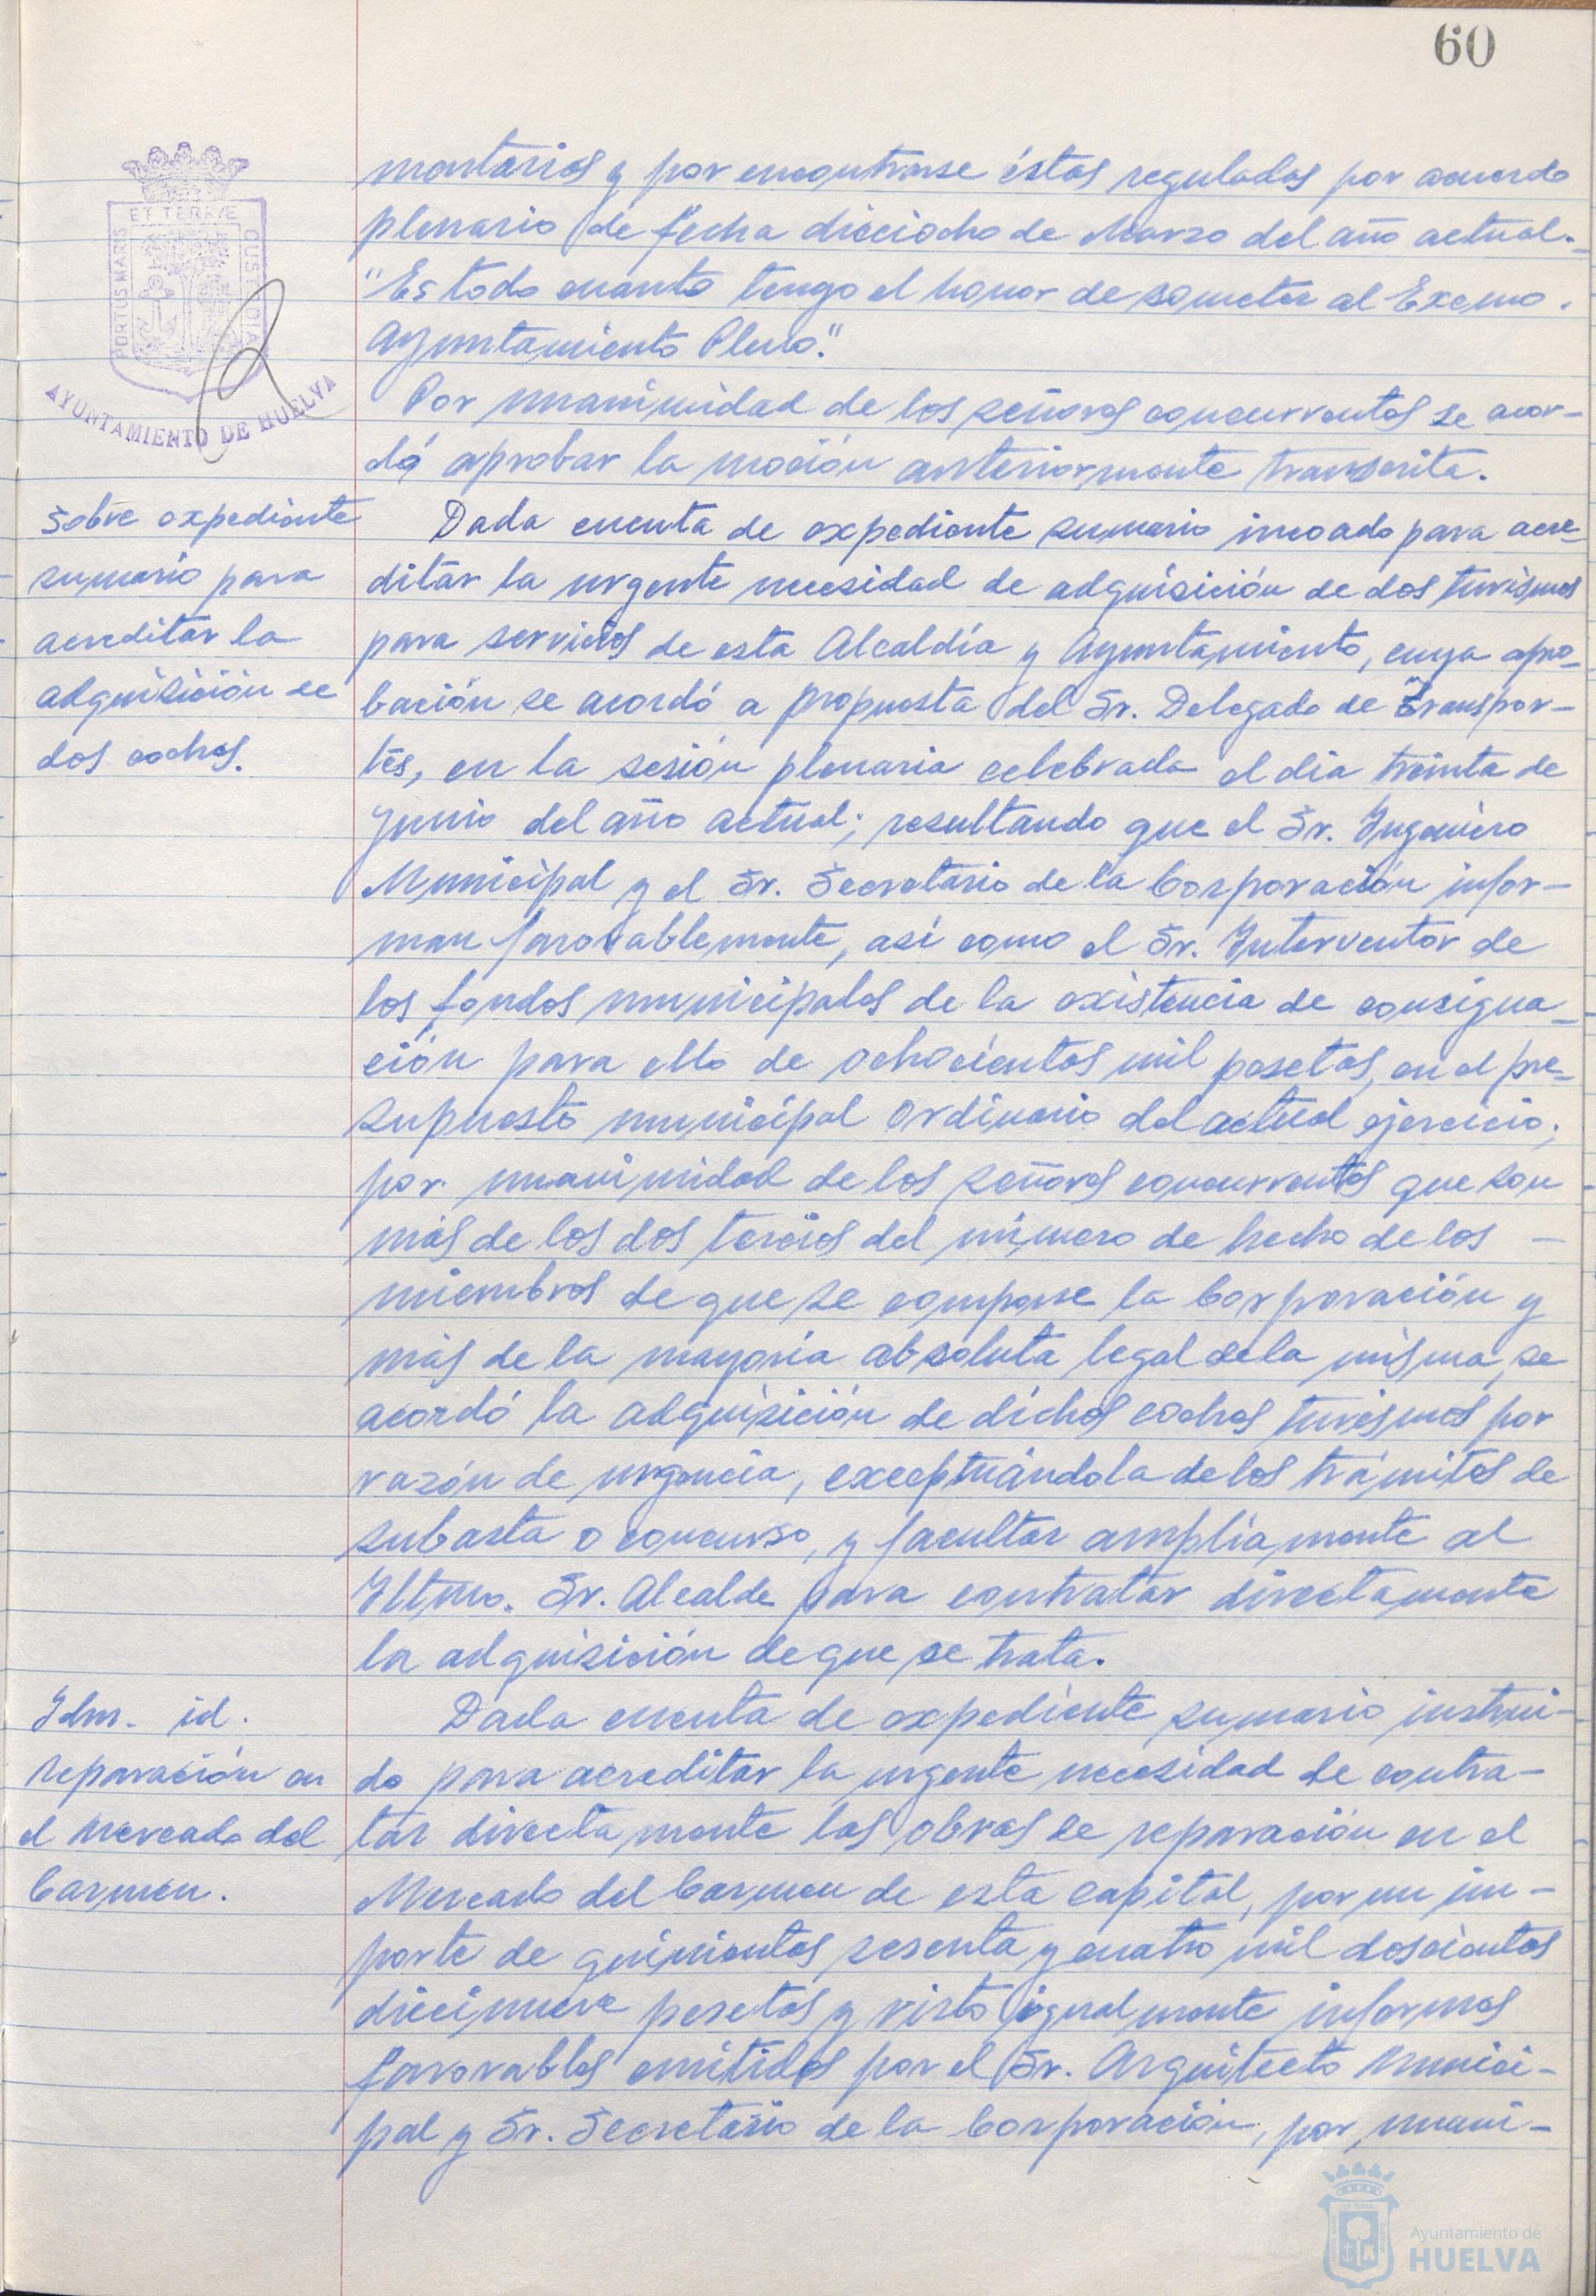 60
mentarios y por encontrarse éstos regulados por acuerdo
plenario de fecha dieciocho de Marzo del año actual.-
"Es todo cuanto tengo el honor de someter al Excmo.
Ayuntamiento Pleno."
Por unanimidad de los señores concurrentes se acor-
dó aprobar la moción anteriormente transcrita.
PORTUS MARIS
ET TERRÆ
CUSTODIA
AYUNTAMIENTO DE HUELVA
Sobre expediente
sumario para
acreditar la
adquisición de
dos coches.
Dada cuenta de expediente sumario incoado para acre-
ditar la urgente necesidad de adquisición de dos turismos
para servicios de esta Alcaldía y Ayuntamiento, cuya apro-
bación se acordó a propuesta del Sr. Delegado de Transpor-
tes, en la sesión plenaria celebrada el día treinta de
Junio del año actual; resultando que el Sr. Ingeniero
Municipal y el Sr. Secretario de la Corporación infor-
man favorablemente, así como el Sr. Interventor de
los fondos municipales de la existencia de consigna-
ción para ello de ochocientas mil pesetas, en el pre-
supuesto municipal ordinario del actual ejercicio;
por unanimidad de los señores concurrentes que son
más de los dos tercios del número de hecho de los -
miembros de que se compone la Corporación y
más de la mayoría absoluta legal de la misma, se
acordó la adquisición de dichos coches turismos por
razón de urgencia, exceptuándola de los trámites de
subasta o concurso, y facultar ampliamente al
Iltmo. Sr. Alcalde para contratar directamente
la adquisición de que se trata.
Idm. id.
reparación en
el Mercado del
Carmen.
Dada cuenta de expediente sumario instrui-
do para acreditar la urgente necesidad de contra-
tar directamente las obras de reparación en el
Mercado del Carmen de esta capital, por un im-
porte de quinientas sesenta y cuatro mil doscientas
diecinueve pesetas y visto igualmente informes
favorables emitidos por el Sr. Arquitecto Munici-
pal y Sr. Secretario de la Corporación, por unani-
Ayuntamiento de
HUELVA